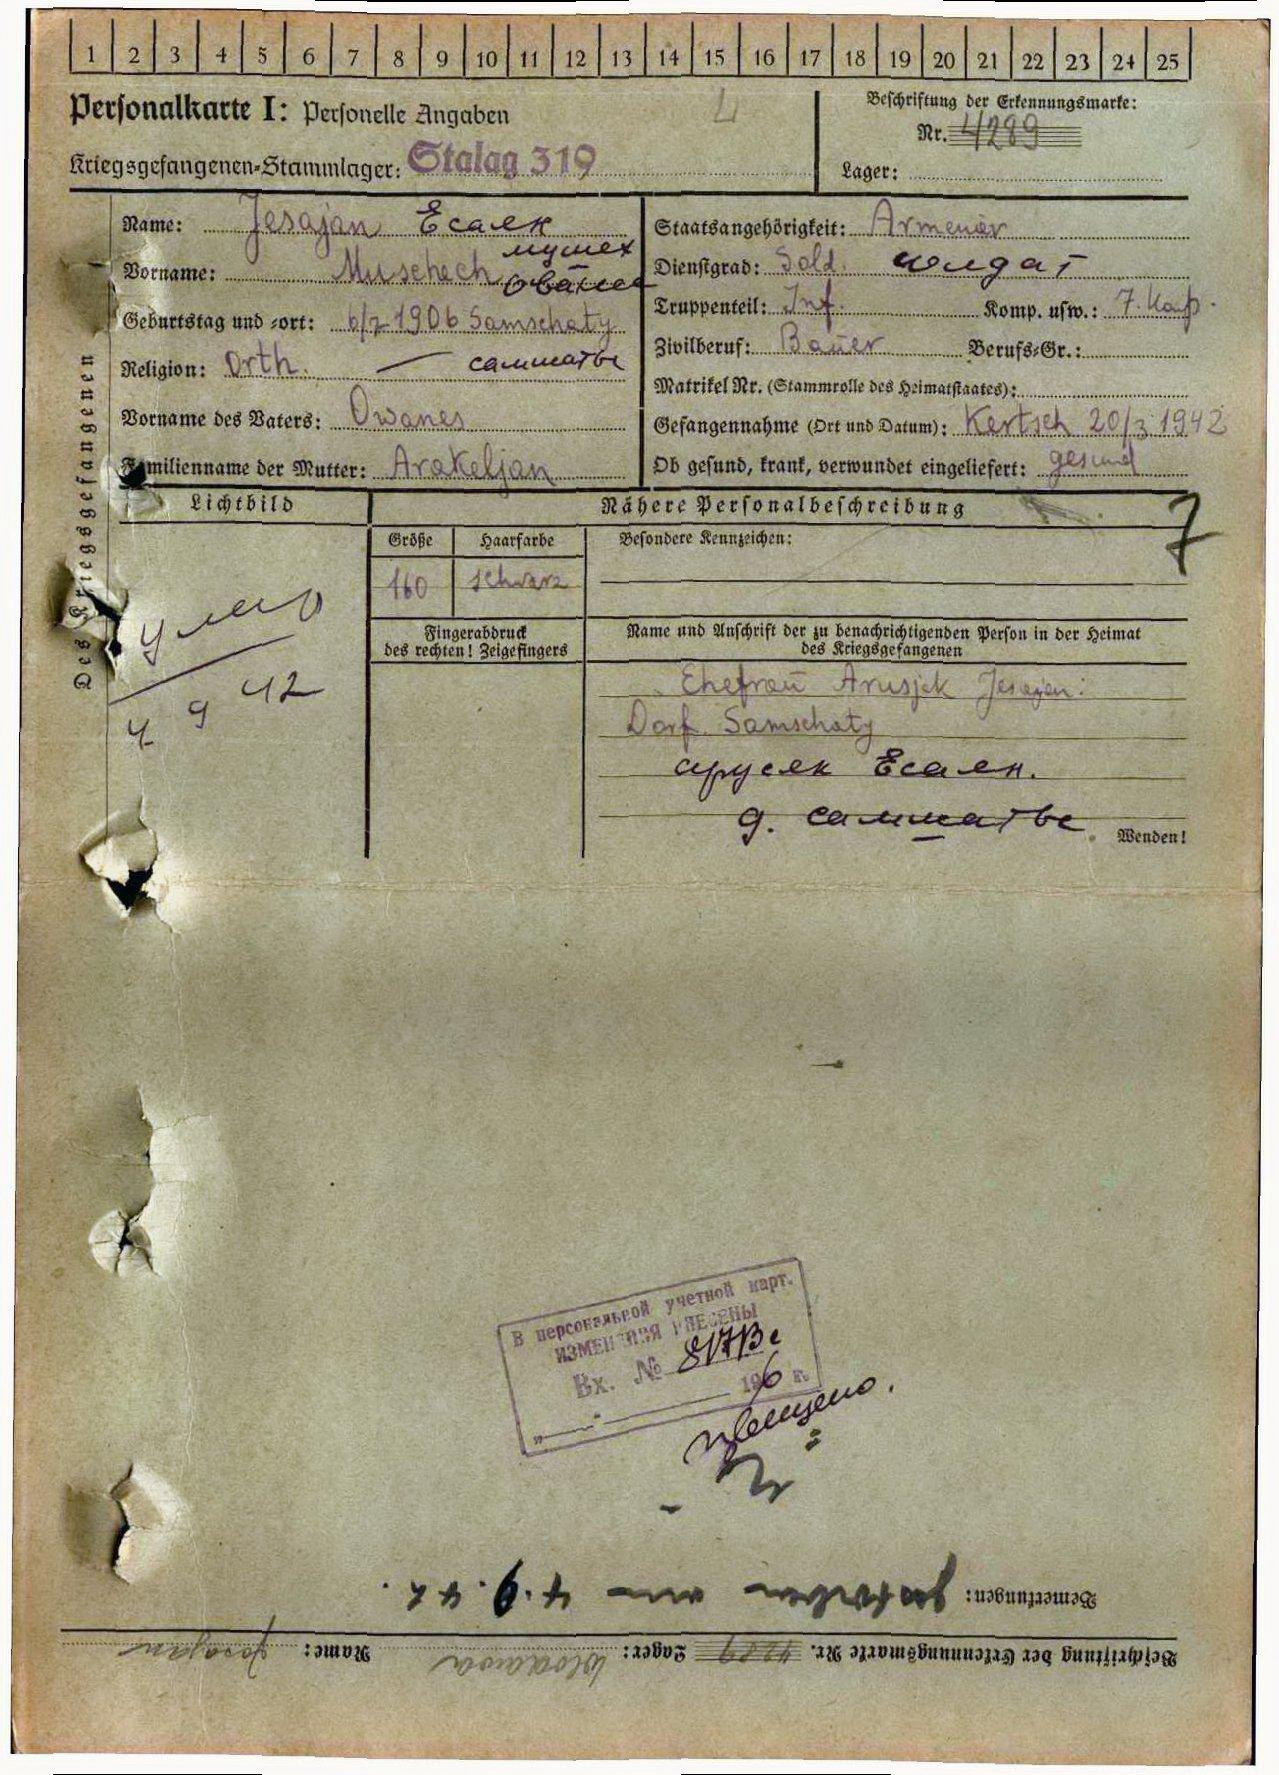 1 2 3 4 5 6 7 8 9 10 11 12 13 14 15 16 17 18 19 20 21 22 23 24 25
Personalkarte I: Personelle Angaben
Kriegsgefangenen-Stammlager: Stalag 319
Beschriftung der Erkennungsmarke:
Nr. 4289
Lager:
Des Kriegsgefangenen
Name: Jesajan Есаян
Vorname: Muschech мушех
ованес
Geburtstag und -ort: 6/7 1906 Samschaty
Religion: Orth. — самшаты
Vorname des Vaters: Owanes
Familienname der Mutter: Arakeljan
Staatsangehörigkeit: Armenier
Dienstgrad: Sold. солдат
Truppenteil: Inf. Komp. usw.: 7. Komp.
Zivilberuf: Bauer Berufs-Gr.:
Matrikel Nr. (Stammrolle des Heimatstaates):
Gefangennahme (Ort und Datum): Kertsch 20/3 1942
Ob gesund, krank, verwundet eingeliefert: gesund
Lichtbild
Nähere Personalbeschreibung
7
Größe Haarfarbe Besondere Kennzeichen:
160 schwarz
умер
4 9 42
Fingerabdruck
des rechten! Zeigefingers
Name und Anschrift der zu benachrichtigenden Person in der Heimat
des Kriegsgefangenen
Ehefrau Arusjek Jesajan:
Dorf. Samschaty
арусяк Есаян.
д. самшаты
Wenden!
В персональной учетной карт.
ИЗМЕНЕНИЯ ВНЕСЕНЫ
Вх. №
196 г.
Bemerkungen: gestorben am 4.9.42.
Beschriftung der Erkennungsmarke Nr. 4289 Lager: Wlodawa Name: Jesajan